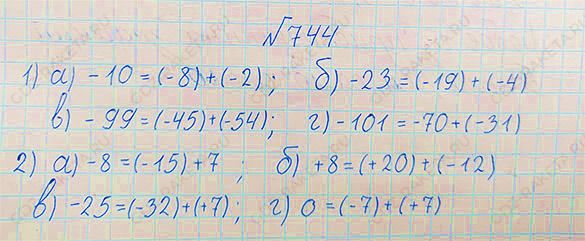 №744
1) а) -10 = (-8) + (-2); б) -23 = (-19) + (-4)
в) -99 = (-45) + (-54); г) -101 = -70 + (-31)
2) а) -8 = (-15) + 7; б) +8 = (+20) + (-12)
в) -25 = (-32) + (+7); г) 0 = (-7) + (+7)